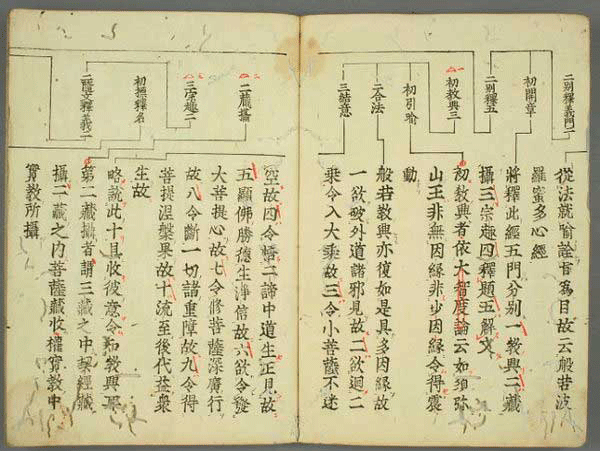 二別釋義門二
初開章
二別釋五
初教興三
初引喻
二合法
三結意
從法就喻詮旨爲目故云般若波
羅蜜多心經
將釋此經五門分別一教興二藏
攝三宗趣四釋題五解文
初教興者依大智度論云如須弥
山王非無因緣非少因緣令得震
動
般若教興亦復如是具多因緣故
一欲破外道諸邪見故二欲迴二
乘令入大乘故三令小菩薩不迷
二藏攝
三宗趣二
初摠釋名
文釋義二
空故四令悟二諦中道生正見故
五顯佛勝德生淨信故六欲令發
大菩提心故七令修菩薩深廣行
故八令斷一切諸重障故九令得
菩提涅槃果故十流至後代益衆
生故
略說此十具收彼意令知教興
第二藏攝者謂三藏之中契經藏
攝二藏之內菩薩藏收權實教中
實教所攝